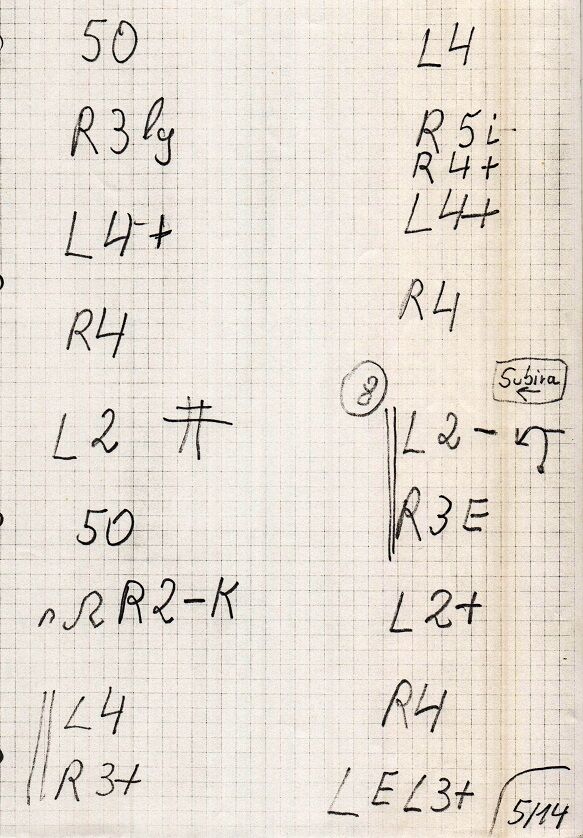 50
R3 lg
L4+
R4
L2
50
R2-K
L4
R3+
L4
R5i
R4+
L4+
R4
8
Subira
L2-
R3E
L2+
R4
L E L3+
5/14